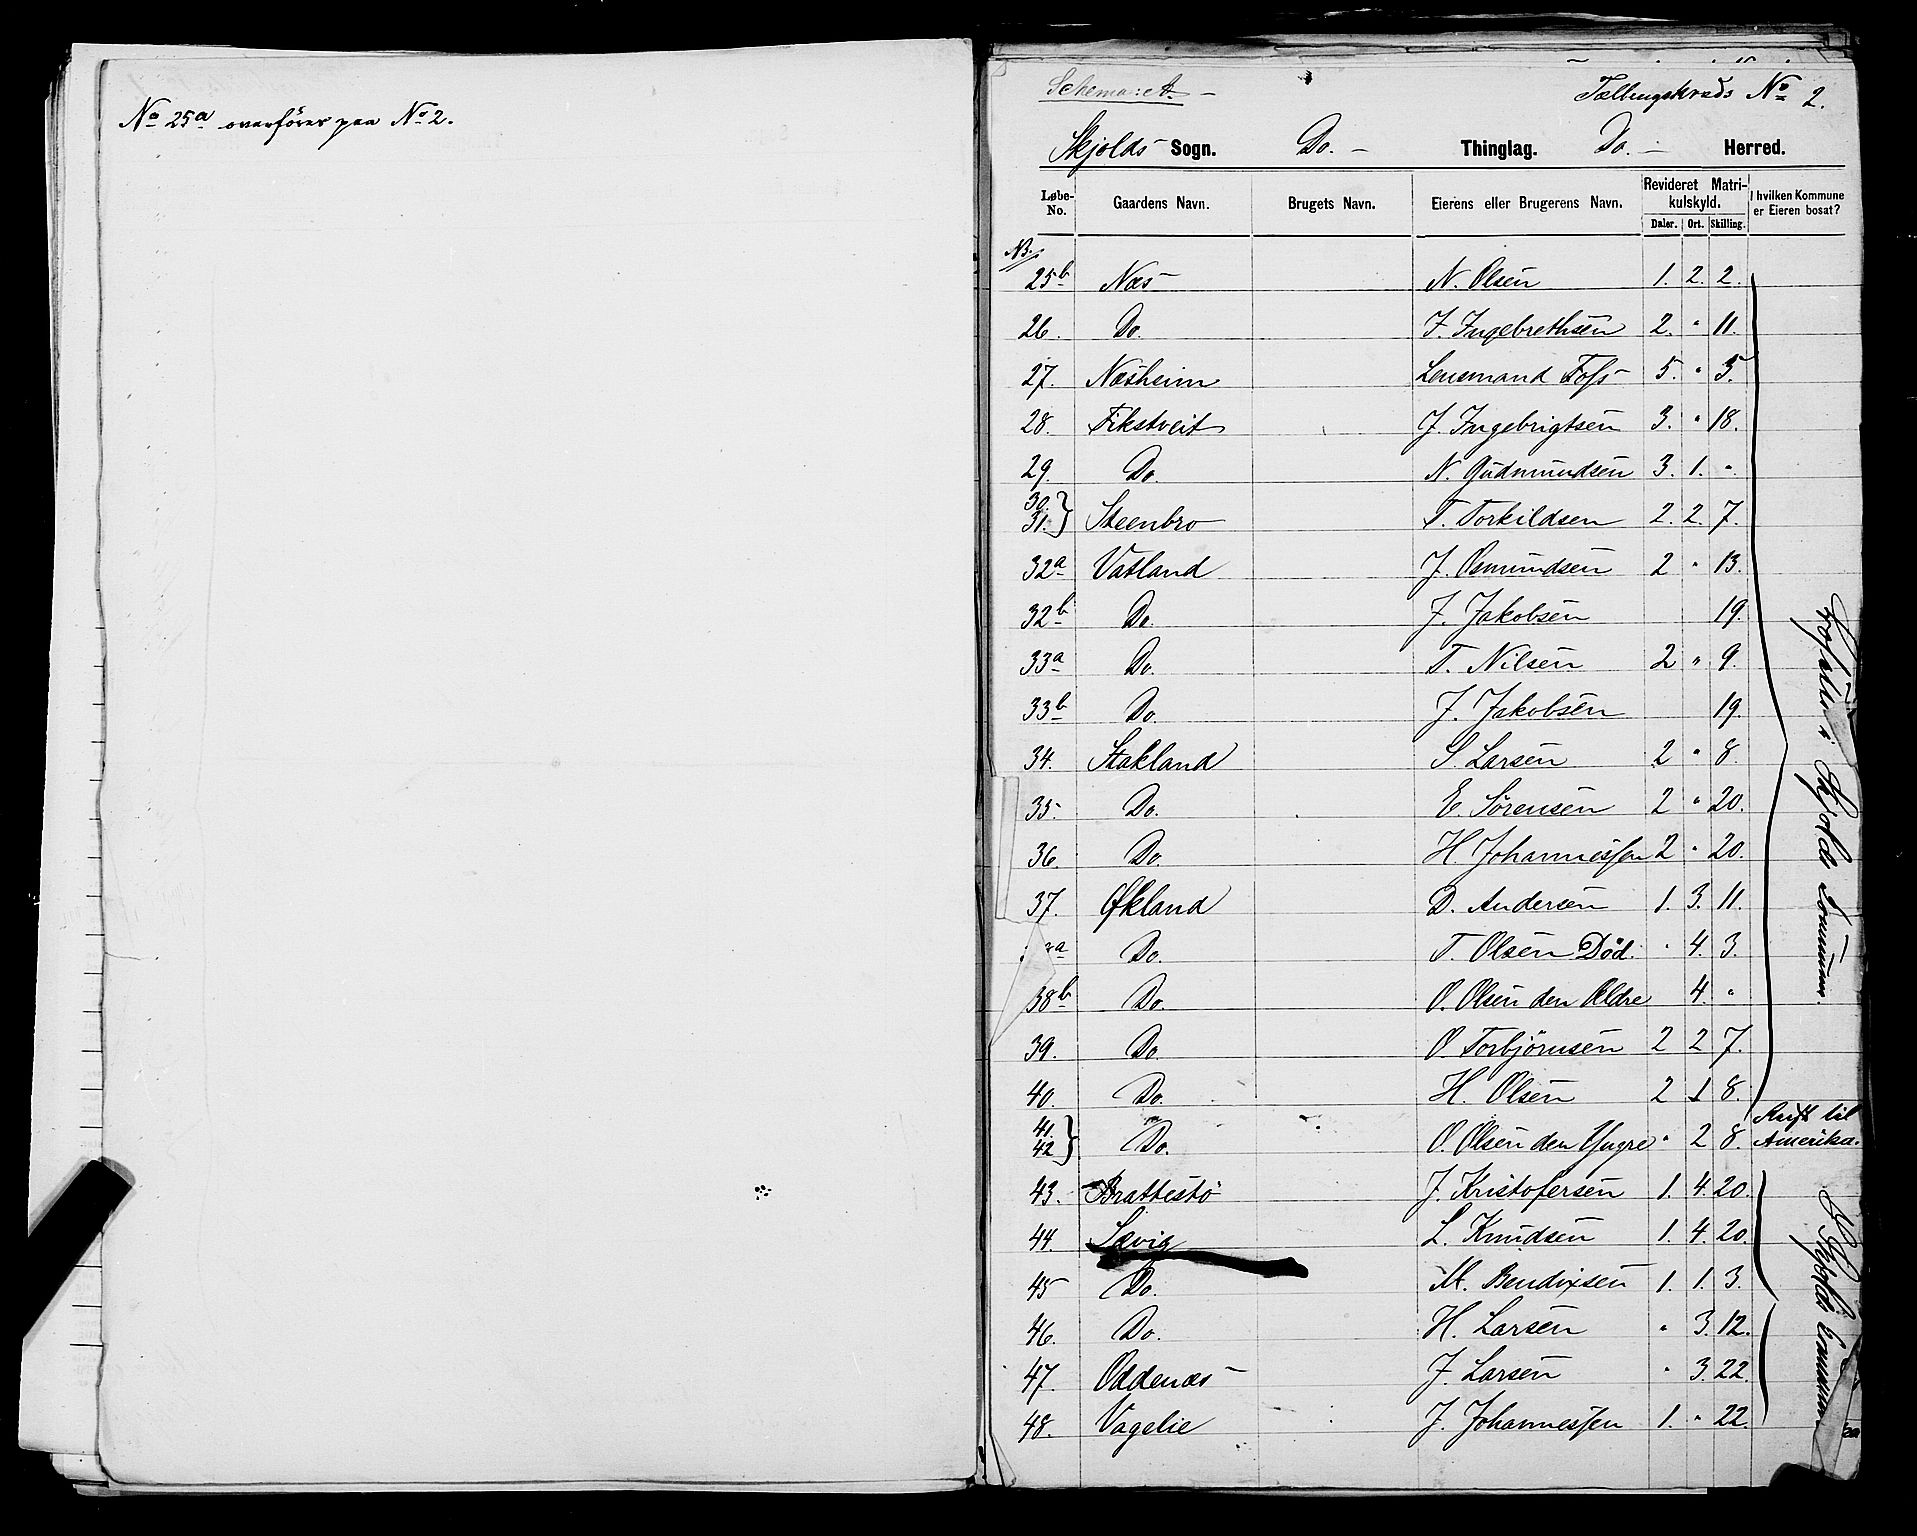 No 25a overføres paa No 2.
Schema: A. -
Tællingskreds No 2.
Skjolds Sogn. Do. - Thinglag. Do. - Herred.
Løbe-No. Gaardens Navn. Brugets Navn. Eierens eller Brugerens Navn. Revideret Matrikulskyld. Daler. Ort. Skilling. I hvilken Kommune er Eieren bosat?
NB.
25b Næs N. Olsen 1. 2. 2.
26. Do. J. Ingebrethsen 2. " 11.
27. Næsheim Lensmand Fofs 5. " 5.
28. Fikstveit J. Ingebrigtsen 3. " 18.
29. Do. N. Gudmundsen 3. 1. "
30. 31. } Steenbro T. Torkildsen 2. 2. 7.
32a Vatland J. Osmundsen 2 " 13.
32b Do. J. Jakobsen 19.
33a Do. T. Nilsen 2 " 9.
33b Do. J. Jakobsen 19.
34. Stakland S. Larsen 2 " 8.
35. Do. E. Sørensen 2 " 20.
36. Do. H. Johannesfen 2 " 20.
37. Økland D. Andersen 1. 3. 11.
a Do. T. Olsen Død. " 4. 3.
38b Do. O. Olsen den Ældre 4. "
39. Do O. Torbjørnsen 2 2 7.
40. Do. H. Olsen 2 1 8.
41. 42 } Do. O. Olsen den Yngre " 2 8. Reist til Amerika.
43. Brattestø J. Kristofersen 1. 4. 20.
44. Sævig L. Knudsen 1. 4. 20.
45 Do. M. Bendixsen 1. 1. 3.
46. Do. H. Larsen " 3. 12.
47. Oddenæs J. Larsen " 3. 22.
48. Vagelie J. Johannesfen 1. " 22.
i Skjolds Kommune.
Skjolds Kommune